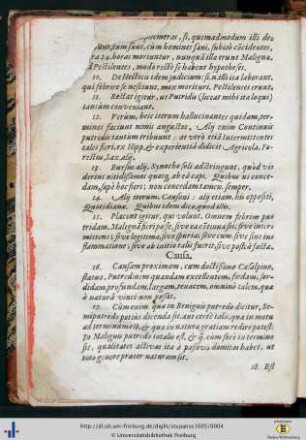 hemeras, si, quemadmodum illi de-
tum, sunt, cùm homines sani, subitò cōcidentes,
ra 24. horas moriuntur, nunquā illa erunt Maligna,
Pestilentes, modo rectè se habent hypotheses.
10. De Hecticis idem judicium: si .n. illis ita laborant,
qui febrire se nesciunt, mox morituri. Pestilentes erunt.
11. Restat igitur, ut Putridis (liceat mihi ita loqui)
tantùm conveniant.
12. Verùm, heic iterum hallucinantes quidam, ter-
minos faciunt nimis angustos. Alij enim Continuis
putridis tantùm tribuunt, at verò etiā Intermittentes
tales fieri, ex Hipp. & experientiâ didicit Agricola, Fo-
restus, Sax. alij.
13. Rursus alij, Synocho soli adstringunt, quòd vis
derint nitidissimè quoq; ab eâ capi. Quibus ut conce-
dam, sæpè hoc fieri; non concedam tamen, semper.
14. Alij iterum, Causoni: alij etiam, his oppositi,
Quotidianæ. Quibus idem dico, quod aliis.
15. Placent igitur, qui volunt, Omnem febrim pu-
tridam, Malignā fieri posse, sive ea cōtinua sit, sive inter-
mittens; sive legitima, sive spuria; sive cum sive sine in-
flammatione; sive ab initio talis fuerit, sive pòst sit facta.
Causa.
16. Causam proximam, cum doctissimo Cæsalpino,
statuo, Putredinem quandam excellentem, fœdam, sor-
didam, profundam, largam, tenacem, omninò talem, quæ
à naturâ vinci non possit.
17. Cùm enim, quæ in Benignis putredo dicitur, Se-
miputredo potiùs dicenda sit, aut certè talis, quæ in motu
ad terminum est, & quæ in naturæ gratiam redire potest:
In Malignis putredo totalis est, & ij. cùm ferè in termino
sit, qualitates activæ ita à passivis dominatæ habet, ut
toto genere præter naturam sit.
18. Est
http://dl.ub.uni-freiburg.de/diglit/stupanus1605/0004
© Universitätsbibliothek Freiburg